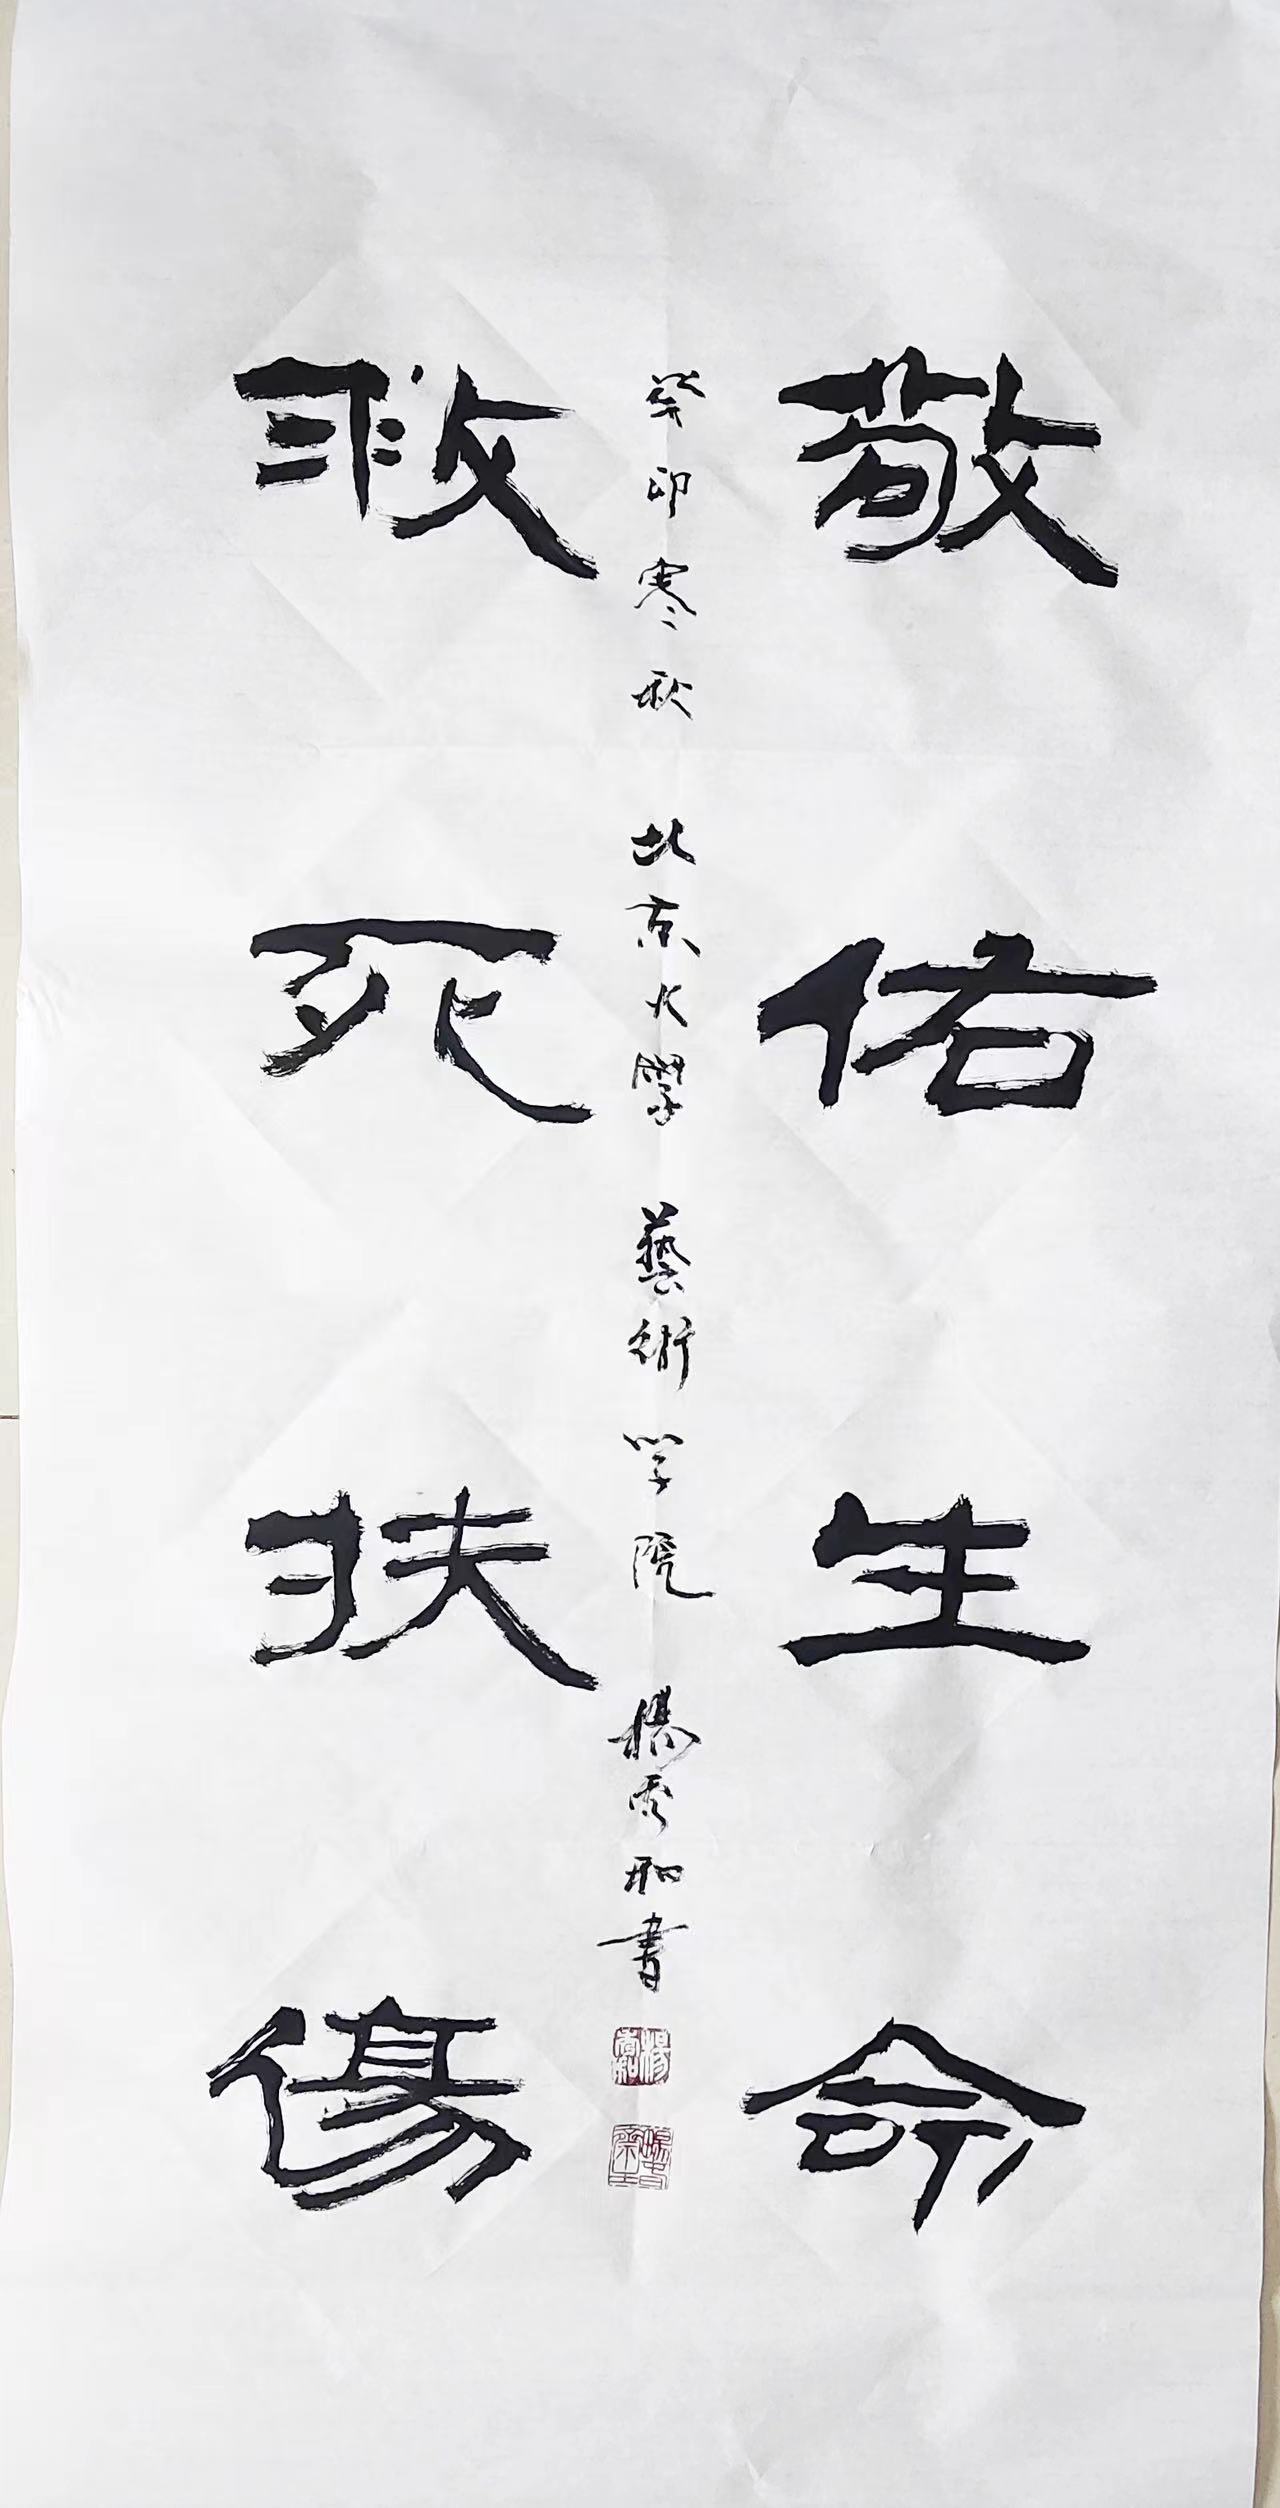 敬佑生命
癸卯寒秋 北京大學 藝術学院 楊雲和書
救死扶傷